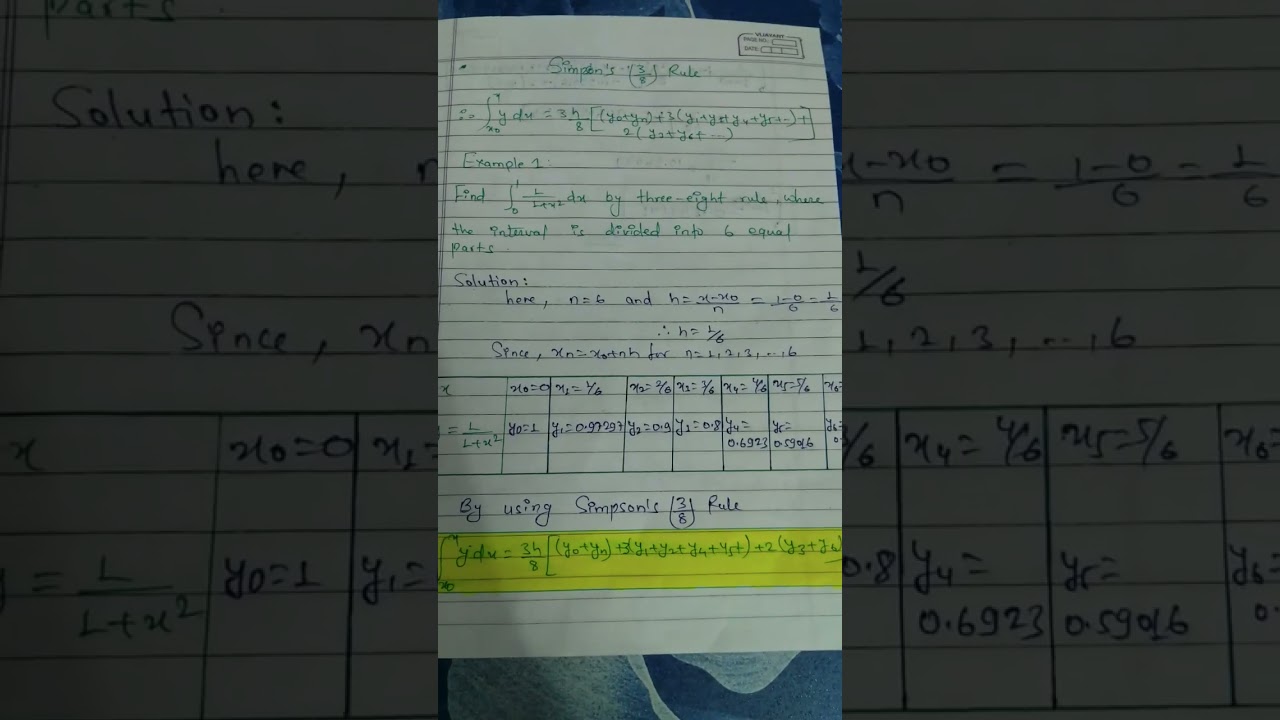 VIJAYANT
PAGE NO.:
DATE:
Simpson's (3/8) Rule
∴ ∫x0^x y dx = 3h/8 [(y0+yn)+3(y1+y2+y4+y5+..)+
2(y3+y6+...)]
Example 1:
Find ∫0^1 1/1+x² dx by three-eight rule, where
the interval is divided into 6 equal
parts.
Solution:
here, n=6 and h= x-x0/n = 1-0/6 = 1/6
∴ h= 1/6
Since, xn=x0+nh for n=1,2,3,...,6
x x0=0 x1=1/6 x2=2/6 x3=3/6 x4=4/6 x5=5/6 x6=
= 1/1+x² y0=1 y1=0.97297 y2=0.9 y3=0.8 y4=0.6923 y5=0.59016 y6=0.
By using Simpson's (3/8) Rule
∫x0^x y dx = 3h/8 [(y0+yn)+3(y1+y2+y4+y5+)+2(y3+y6)